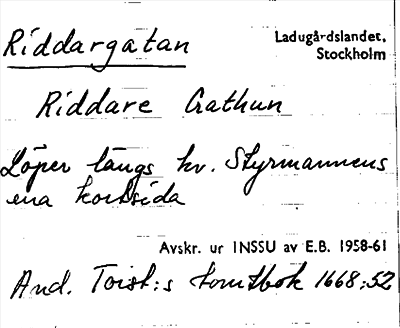 Riddargatan
Ladugårdslandet,
Stockholm
Riddare Gathun
Löper längs kv. Styrmannens
ena kortsida
Avskr. ur INSSU av E.B. 1958-61
And. Torst:s tomtbok 1668:52